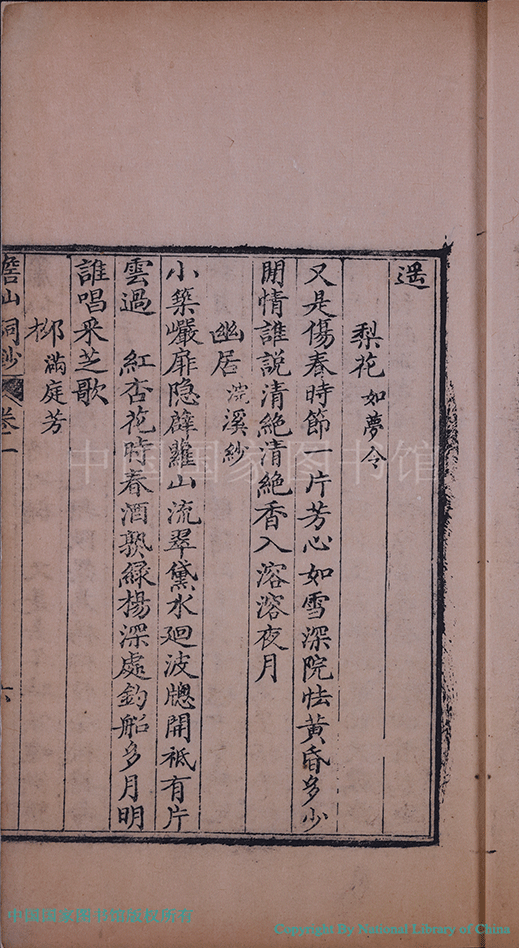 遥
梨花 如夢令
又是傷春時節一片芳心如雪深院怯黃昏多少
閒情誰說清絶清絶香入溶溶夜月
幽居 浣溪紗
小築巖扉隐薜蘿山流翠黛水廻波牕開祗有片
雲過 紅杏花時春酒熟緑楊深處釣船多月明
誰唱采芝歌
柳 滿庭芳
山詞鈔 卷二 六
中国国家图书馆
中国国家图书馆版权所有
Copyright By National Library of China